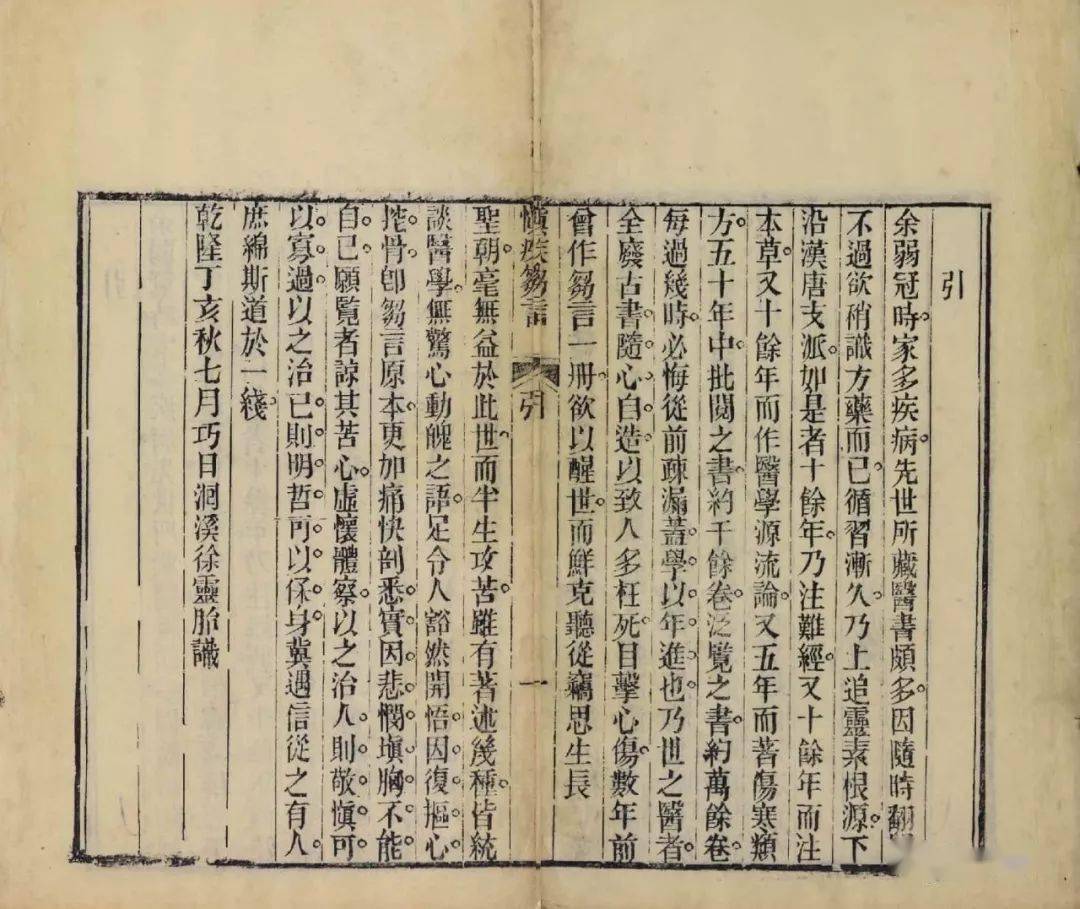 引
余弱冠時家多疾病。先世所藏醫書頗多。因隨時翻
不過欲稍識方藥而已。循習漸久。乃上追靈素根源。下
沿漢唐支派。如是者十餘年。乃注難經。又十餘年而注
本草。又十餘年而作醫學源流論。又五年而著傷寒類
方。五十年中。批閱之書約千餘卷。泛覽之書約萬餘卷。
每過幾時。必悔從前疎漏。蓋學以年進也。乃世之醫者。
全廢古書。隨心自造。以致人多枉死。目擊心傷。數年前
曾作芻言一冊。欲以醒世。而鮮克聽從。竊思生長
慎疾芻言 引 一
聖朝。毫無益於此世。而半生攻苦。雖有著述幾種。皆統
談醫學。無驚心動魄之語。足令人豁然開悟。因復摳心
挖骨。卽芻言原本。更加痛快剖悉。實因悲憫塡胸。不能
自已。願覽者諒其苦心。虛懷體察。以之治人。則敬愼可
以寡過。以之治已。則明哲可以保身。冀遇信從之有人。
庶綿斯道於一綫。
乾隆丁亥秋七月巧日洄溪徐靈胎識